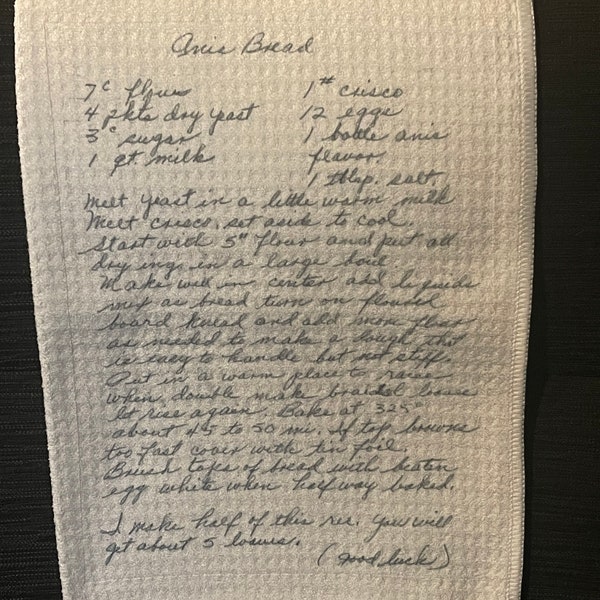 Anis Bread
7c flour
4 pkts dry yeast
3c sugar
1 qt. milk
1# crisco
12 eggs
1 bottle anis
flavor
1 tblsp. salt.
Melt yeast in a little warm milk
Melt crisco, set aside to cool.
Start with 5# flour and put all
dry ing. in a large bowl.
Make well in center add liquids
mix as bread turn on floured
board knead and add more flour
as needed to make a dough tht
is easy to handle but not stiff
Put in a warm place to raise
when double make braided loaves
let rise again. Bake at 325°
about 45 to 50 mi. If top browns
too fast cover with tin foil.
Brush tops of bread with beaten
egg white when half way baked.
I make half of this res. You will
get about 5 loaves.
(good luck)